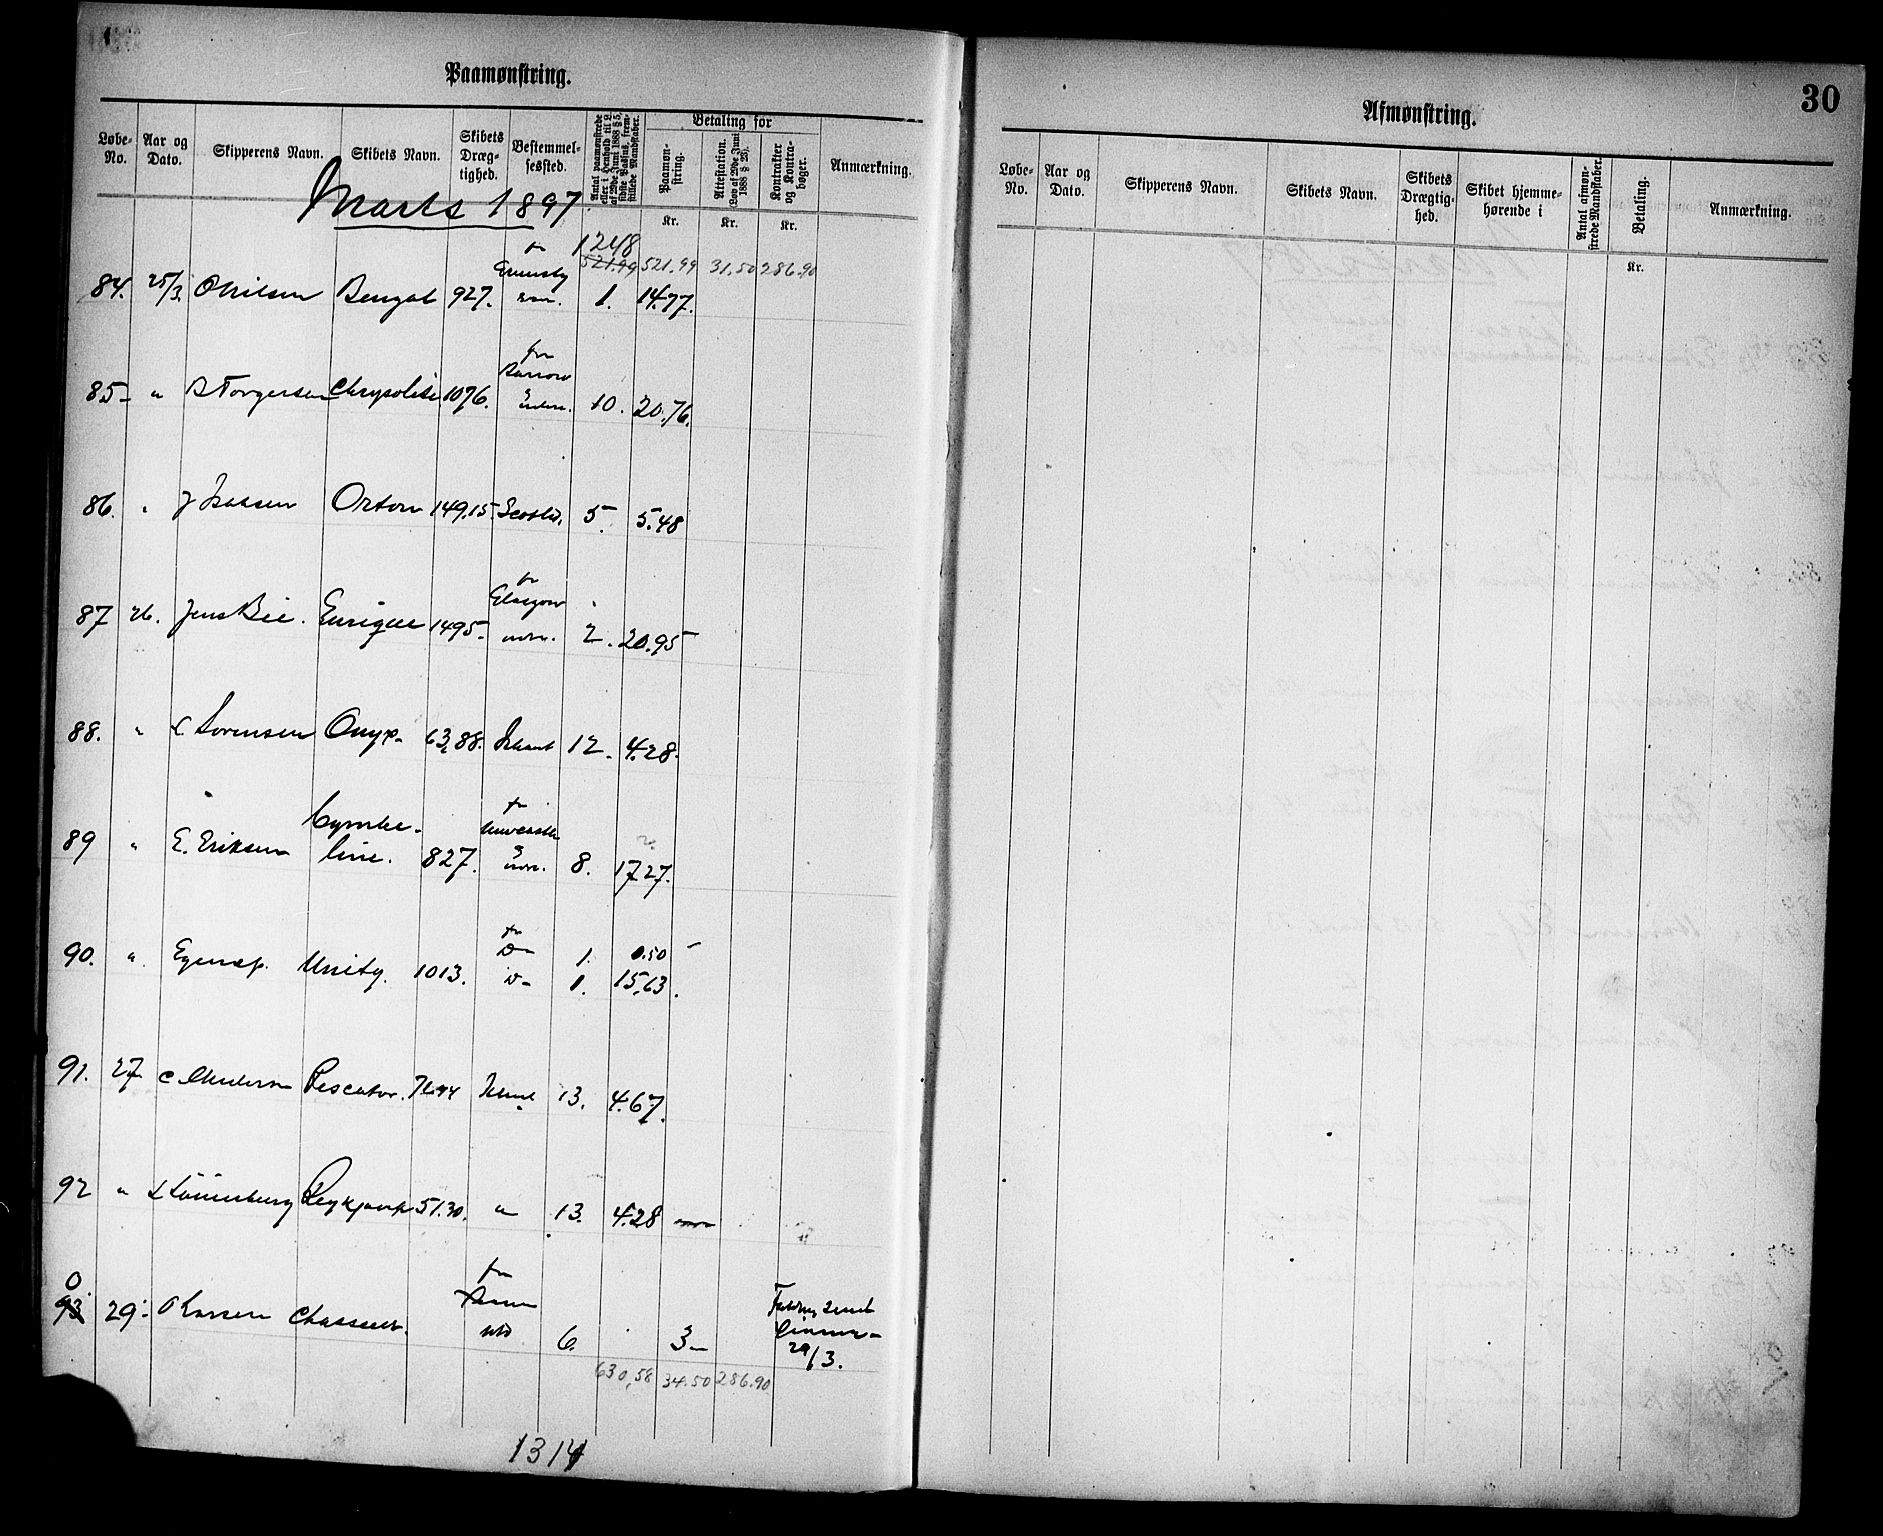 Paamønstring.
Løbe-No. Aar og Dato. Skipperens Navn. Skibets Navn. Skibets Dræg-tighed. Bestemmel-sessted. Antal paamønstrede eller i Henhold til L. af 29de Juni 1888 § 5, sidste Passus, frem-stillede Mandskaber. Betaling for Paamøn-string. Attestation. (Lov af 29de Juni 1888 § 23). Kontrakter og Kontra-bøger. Anmærkning.
Marts 1897
Kr. Kr. Kr.
1248
521.99 521.99 31.50 286.90
fr
Grimsby
84. 25/3. O Nilsen Bengal 927. 1. 14.77.
fr
Barrow
85 " B Torgersen Chrysolite 1076. 10. 20.76.
86. " J Isaksen Orton 149.15 5. 5.48
fr
Glasgow
87 26. Jens Bie. Enrique 1495. 2. 20.95
88. " L Sørensen Onyx 63,88. 12. 4.28.
fr
Cymbe-
89 " E. Eriksen line. 827. 8. 17.27.
fr
Do 1. 0.50
90. " Unity. 1013. Do 1. 15,63.
91. 27 Pescator. 13. 4.67.
92 " Reykjavik 51.30. " 13. 4.28
0
fr
93. 29. O Larsen Chasseur. 6. 3.
29/3.
630,58 34.50 286.90
1314
30
Afmønstring.
Løbe-No. Aar og Dato. Skipperens Navn. Skibets Navn. Skibets Drægtig-hed. Skibet hjemme-hørende i Antal afmøn-strede Mandskaber. Betaling. Anmærkning.
Kr.